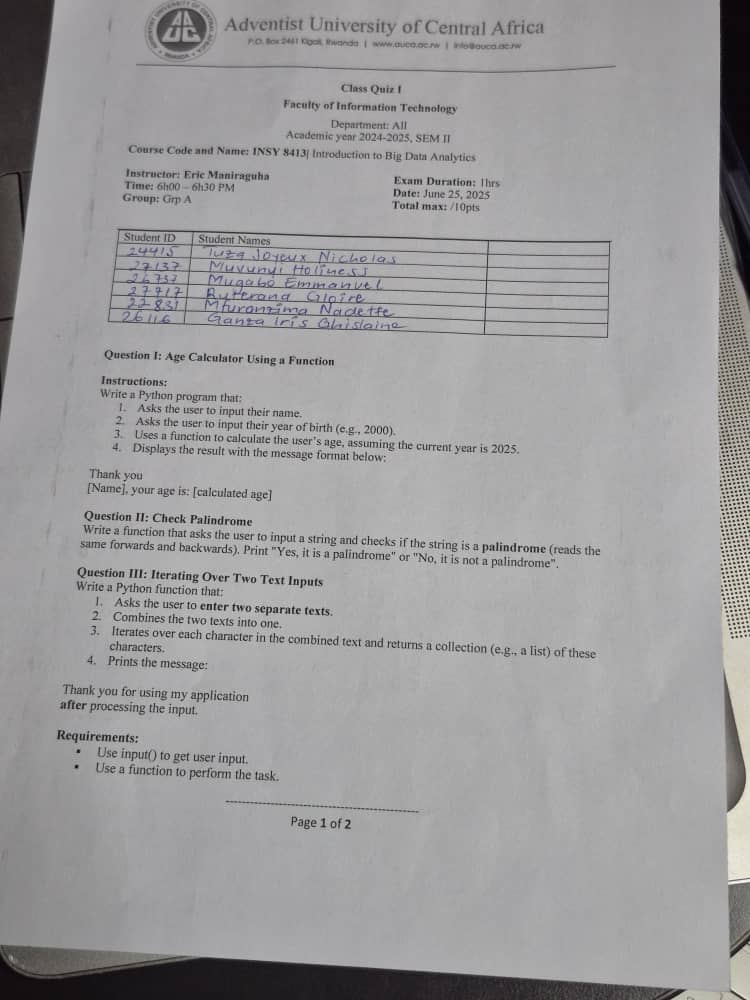 Adventist University of Central Africa
P.O. Box 2461 Kigali, Rwanda | www.auca.ac.rw | info@auca.ac.rw
Class Quiz I
Faculty of Information Technology
Department: All
Academic year 2024-2025, SEM II
Course Code and Name: INSY 8413| Introduction to Big Data Analytics
Instructor: Eric Maniraguha
Exam Duration: 1hrs
Time: 6h00 – 6h30 PM
Date: June 25, 2025
Group: Grp A
Total max: /10pts
Student ID Student Names
24415 Tuza Joyeux Nicholas
27137 Muvunyi Holiness
26737 Mugabo Emmanuel
27717 Gloire
22831 Nadette
26116 Ganza Iris Ghislaine
Question I: Age Calculator Using a Function
Instructions:
Write a Python program that:
1. Asks the user to input their name.
2. Asks the user to input their year of birth (e.g., 2000).
3. Uses a function to calculate the user's age, assuming the current year is 2025.
4. Displays the result with the message format below:
Thank you
[Name], your age is: [calculated age]
Question II: Check Palindrome
Write a function that asks the user to input a string and checks if the string is a palindrome (reads the
same forwards and backwards). Print "Yes, it is a palindrome" or "No, it is not a palindrome".
Question III: Iterating Over Two Text Inputs
Write a Python function that:
1. Asks the user to enter two separate texts.
2. Combines the two texts into one.
3. Iterates over each character in the combined text and returns a collection (e.g., a list) of these
characters.
4. Prints the message:
Thank you for using my application
after processing the input.
Requirements:
• Use input() to get user input.
• Use a function to perform the task.
Page 1 of 2